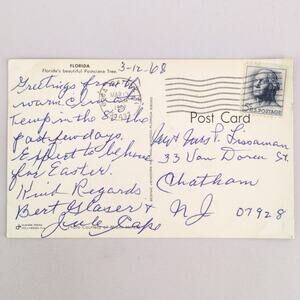 FLORIDA
Florida's beautiful Poinciana Tree.
3-12-68
Greetings from
warm
Temp in the 80s the
past few days.
Expect to be home
for Easter.
Kind Regards
Bert Glaser &
5c U.S. POSTAGE
Post Card
Mr & Mrs P. Lissaman
33 Van Doren St.
Chatham
NJ 07928